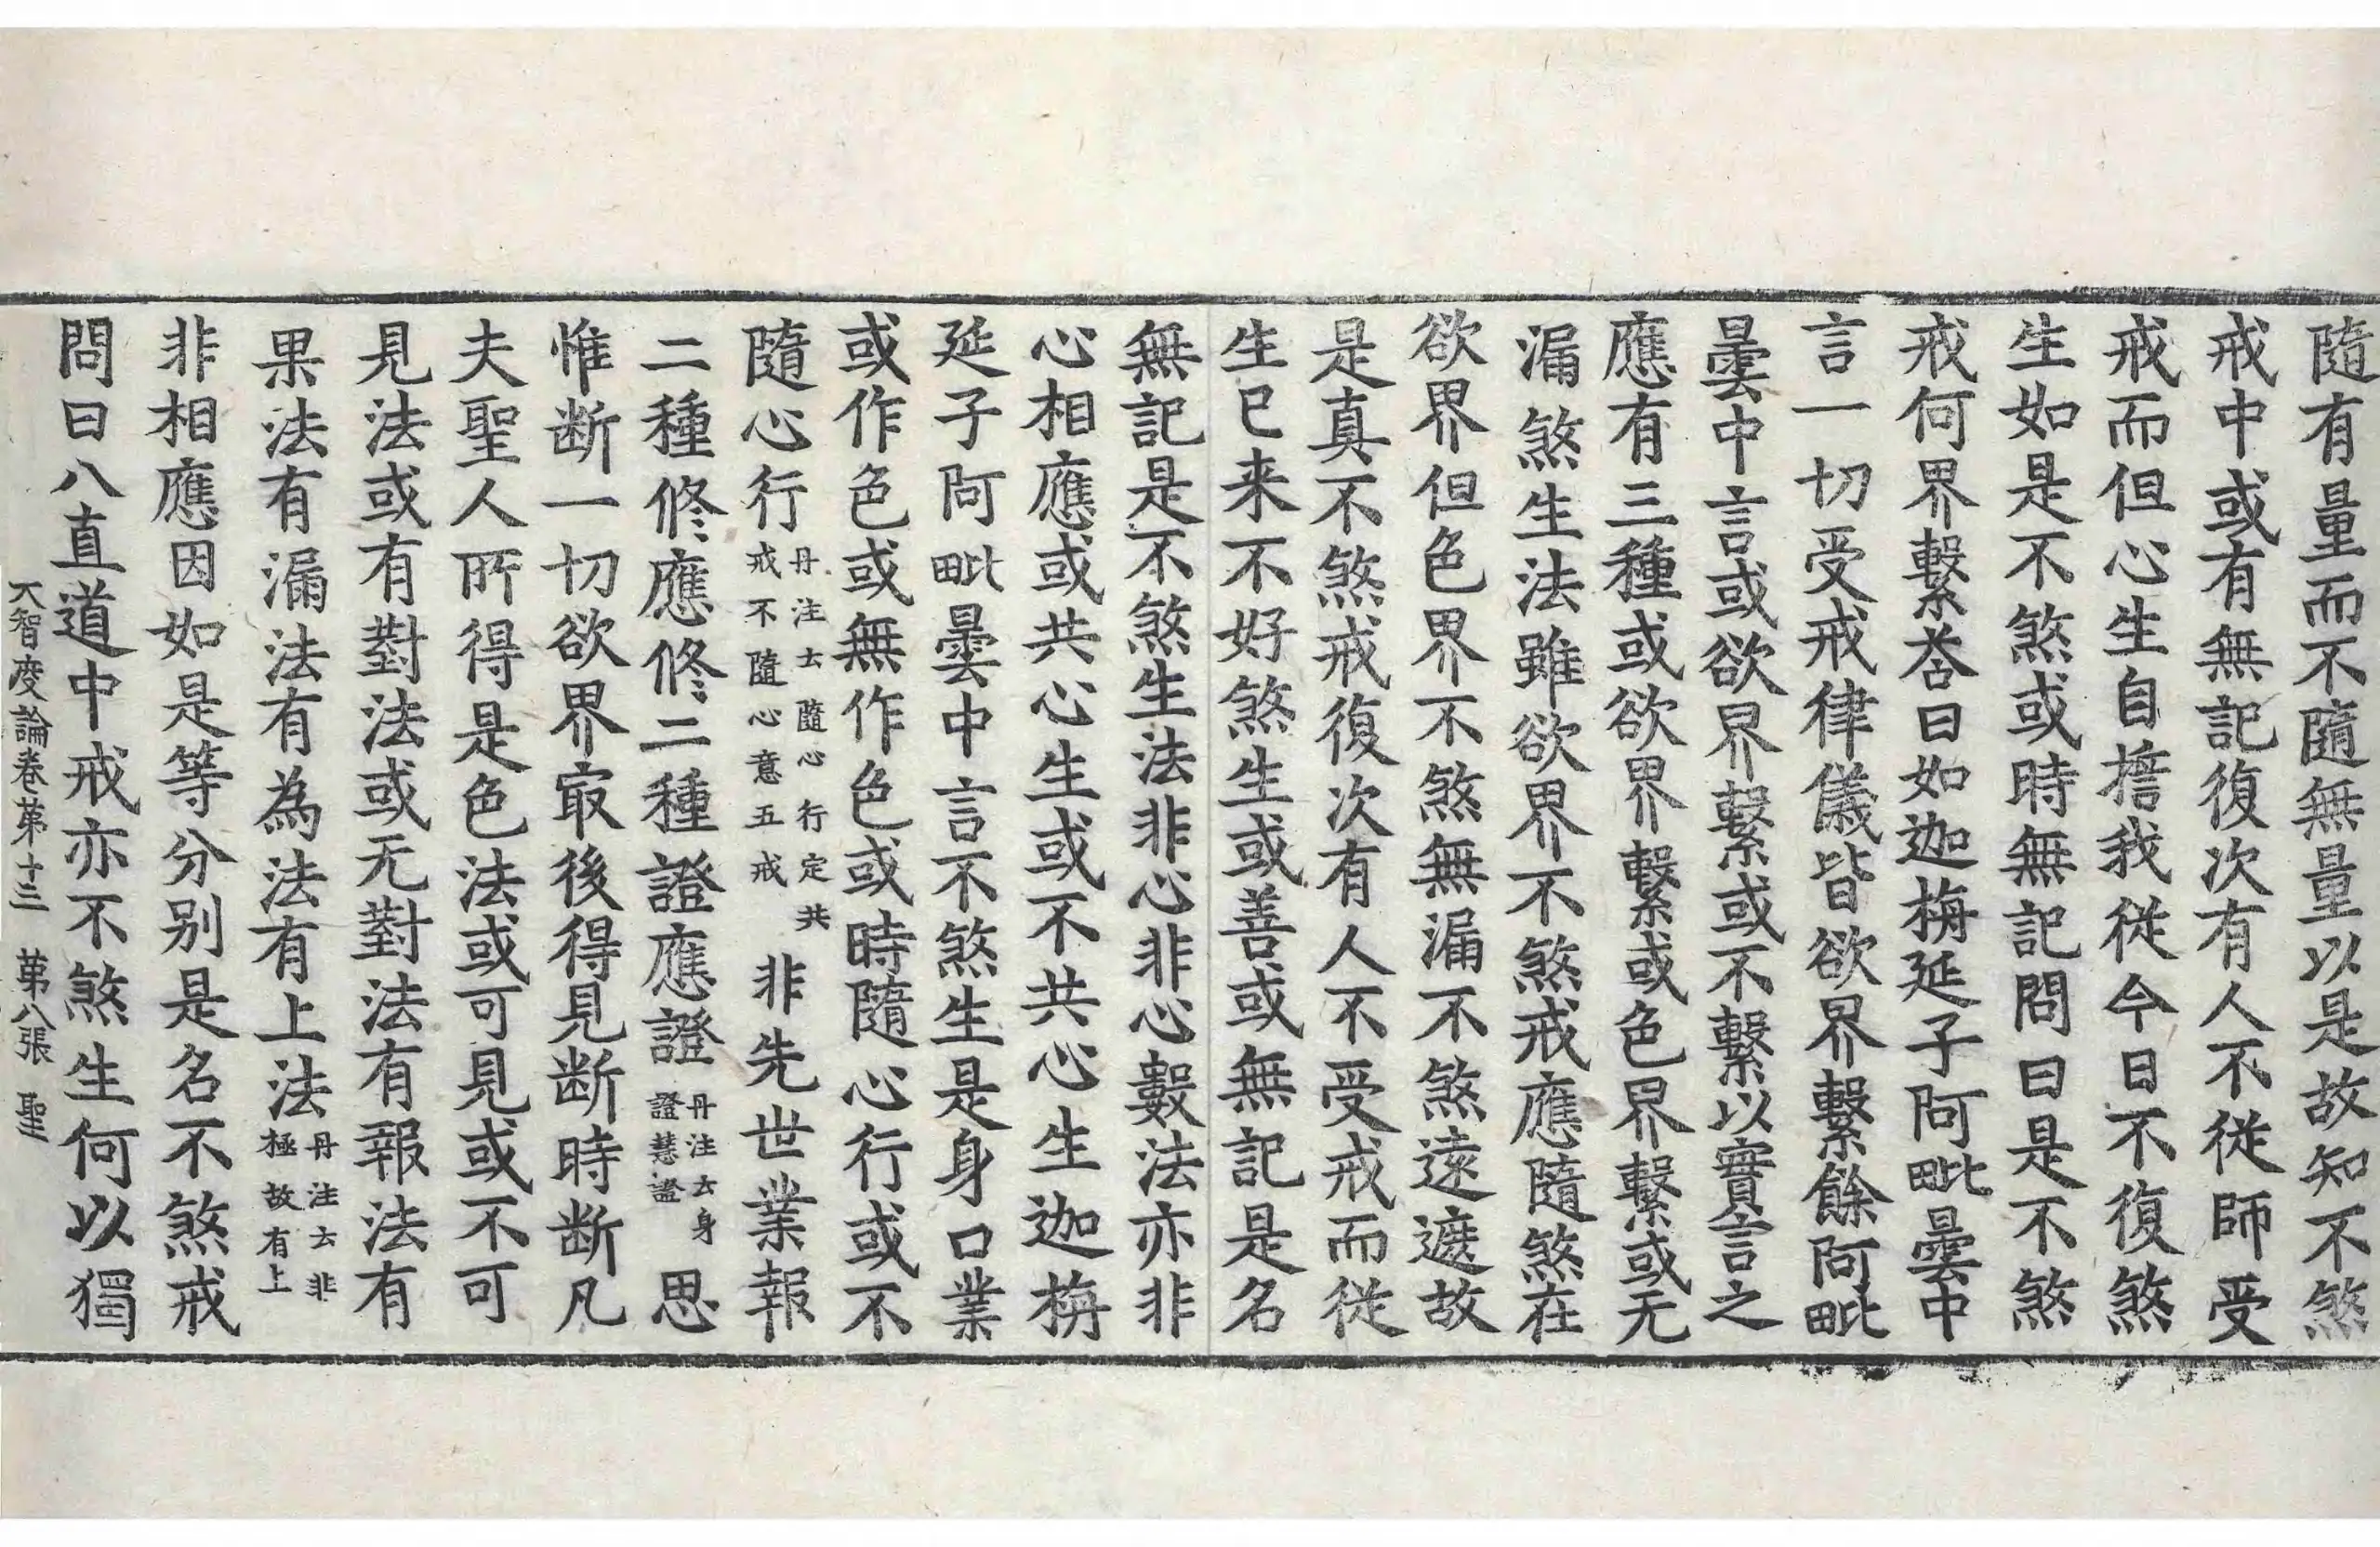 隨有量而不隨無量以是故知不煞
戒中或有無記復次有人不從師受
戒而但心生自擔我從今日不復煞
生如是不煞或時無記問曰是不煞
戒何界繫荅曰如迦栴延子阿毗曇中
言一切受戒律儀皆欲界繫餘阿毗
曇中言或欲界繫或不繫以實言之
應有三種或欲界繫或色界繫或无
漏煞生法雖欲界不煞戒應隨煞在
欲界但色界不煞無漏不煞遠遮故
是真不煞戒復次有人不受戒而從
生已来不好煞生或善或無記是名
無記是不煞生法非心非心數法亦非
心相應或共心生或不共心生迦栴
延子阿毗曇中言不煞生是身口業
或作色或無作色或時隨心行或不
隨心行丹注云隨心行定共戒不隨心意五戒非先世業報
二種修應修二種證應證丹注云身證慧證思
惟断一切欲界㝡後得見断時断凡
夫聖人所得是色法或可見或不可
見法或有對法或无對法有報法有
果法有漏法有為法有上法丹注云非極故有上
非相應因如是等分別是名不煞戒
問曰八直道中戒亦不煞生何以獨
大智度論卷苐十三 苐八張 聖